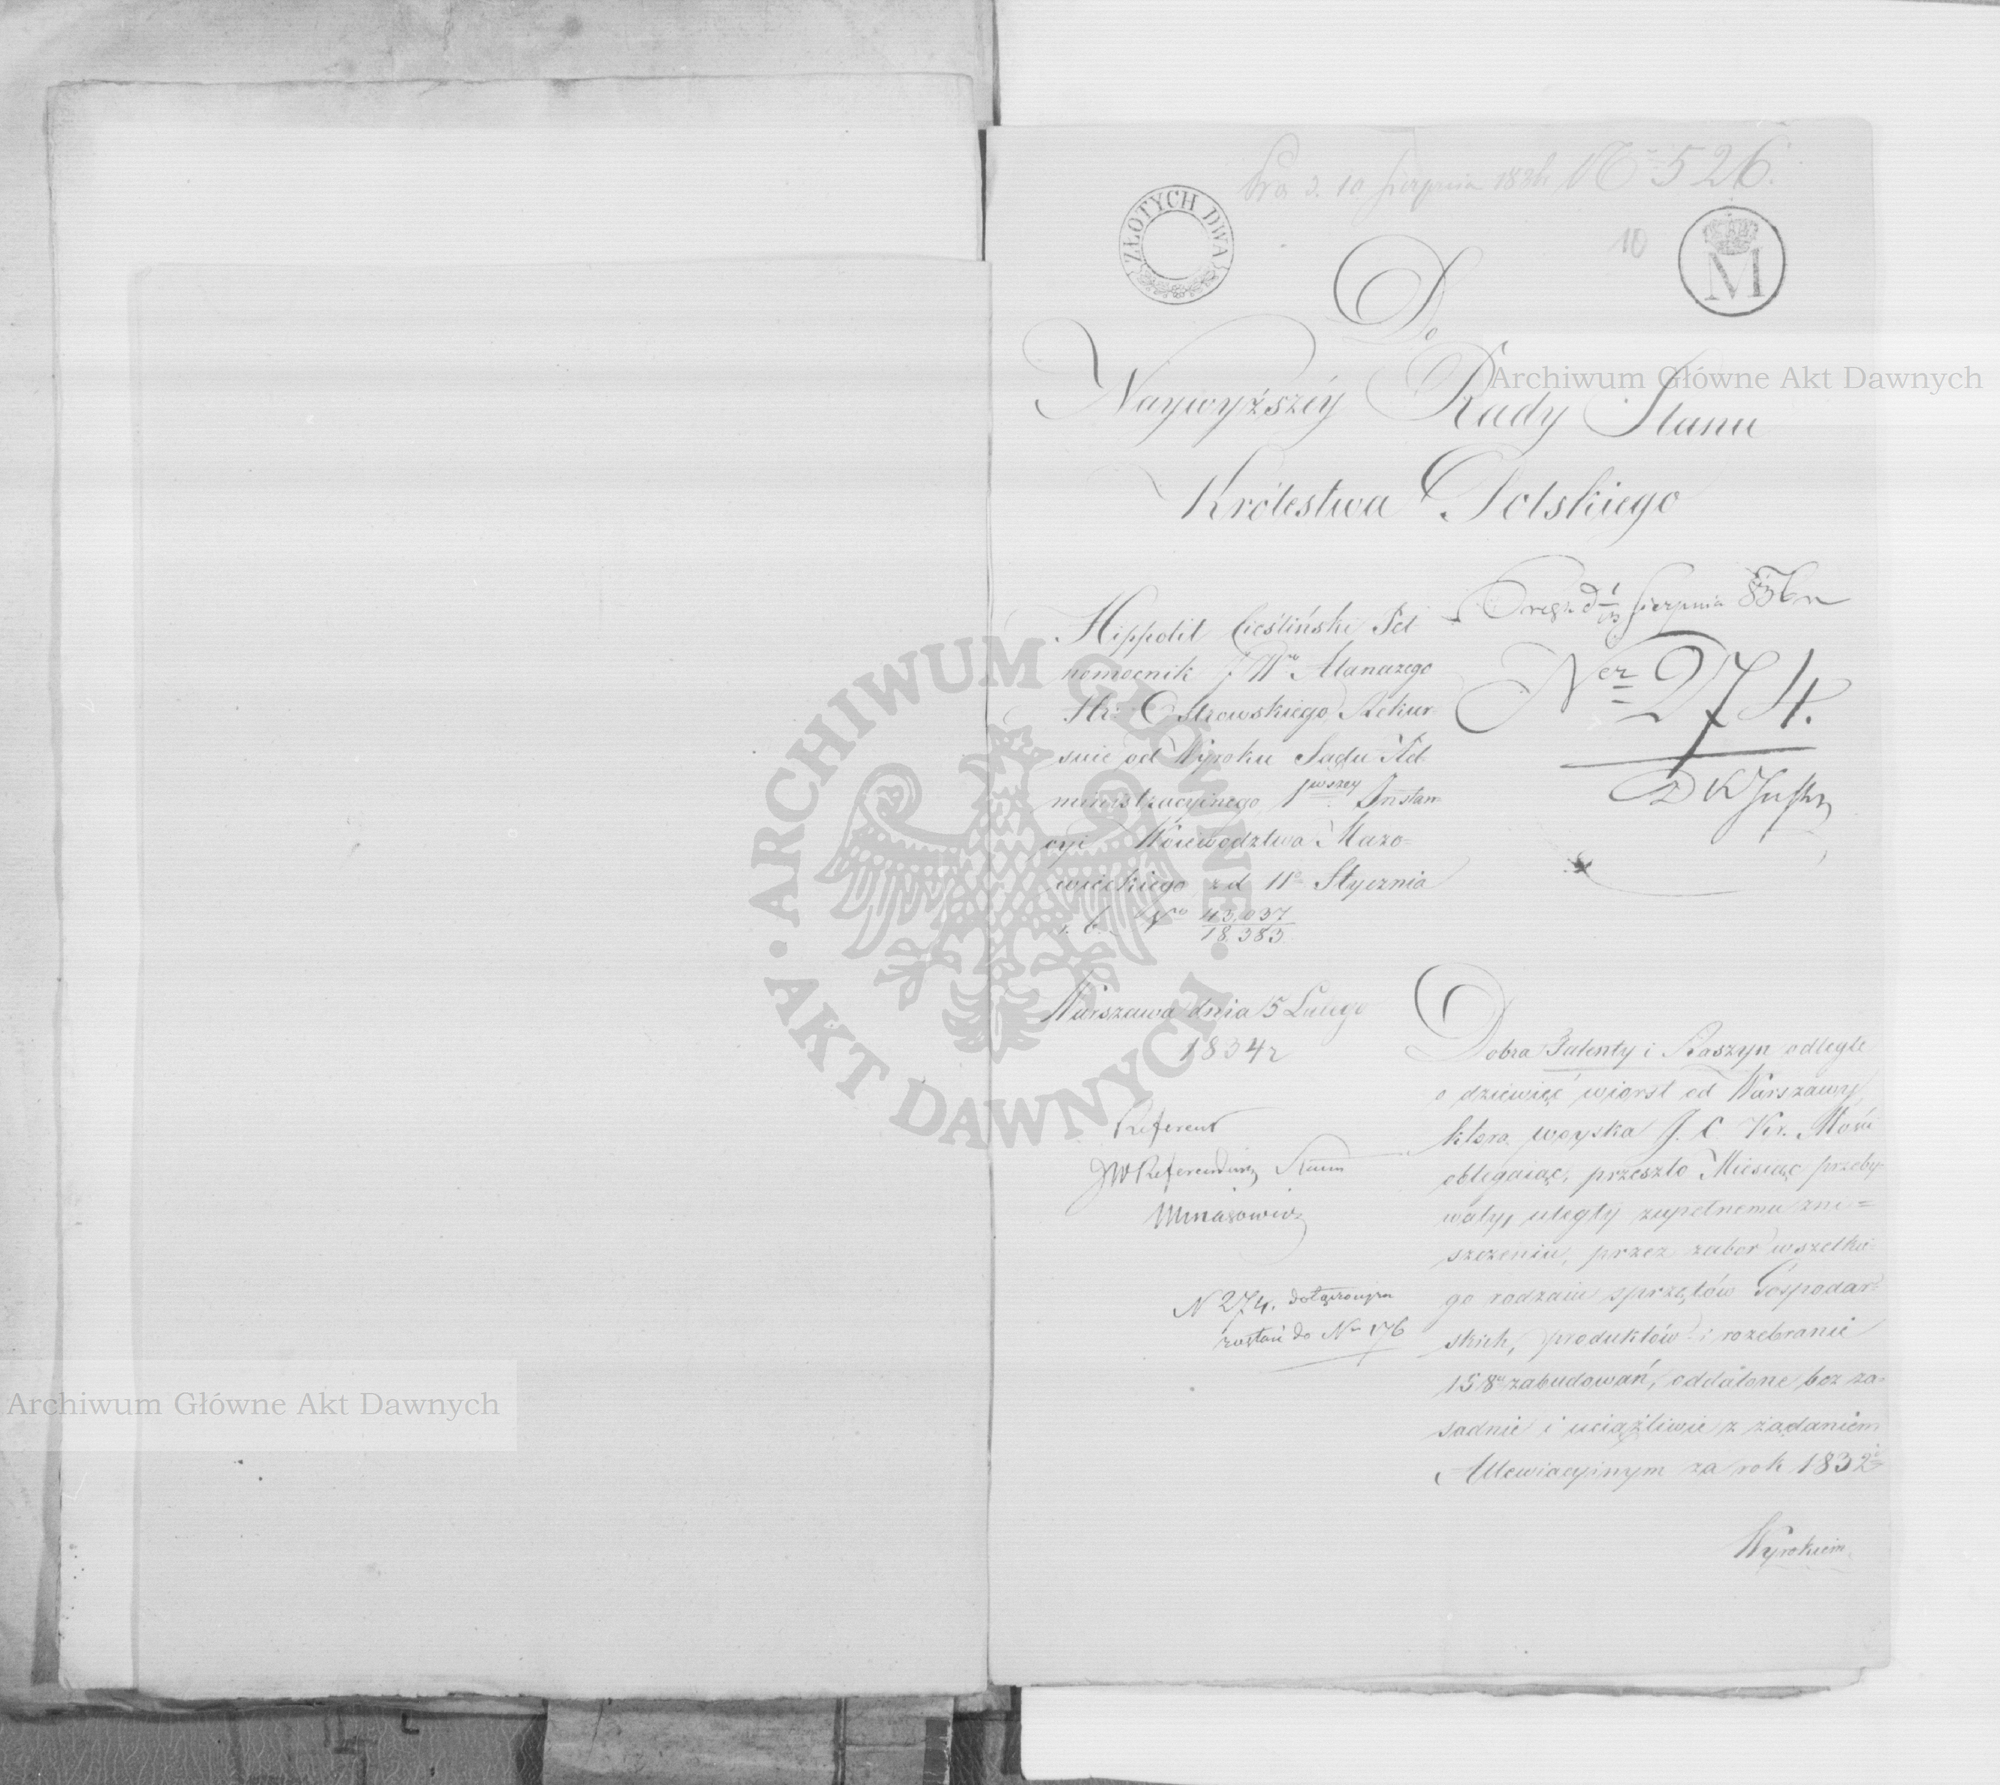 Pra d. 10 sierpnia 1836 N 526.
ZŁOTYCH DWA
10
M
Do
Naywyższéy Rady Stanu
Królestwa Polskiego
Hippolit Cieśliński Peł-
nomocnik JW Atanazego
Hr: Ostrowskiego, Rekur-
suie od Wyroku Sądu Ad-
ministracyinego 1wszey Instan-
cyi Woiewodztwa Mazo=
wieckiego z d 11o Stycznia
r. b. No 43.037
18.383
Warszawa dnia 5 Lutego
1834 r
Referent
JW Referendarz Stanu
Minasowicz
N 274. dołączonym
został do Nr 176
sierpnia 836 r
Ner 274.
Dobra Falenty i Raszyn odległe
o dziewięć wiorst od Warszawy
którą woyska J. C. Kr. Mości
oblegaiąc, przeszło Miesiąc przeby-
wały, uległy zupełnemu zni=
szczeniu, przez zabor wszelkie-
go rodzaiu sprzętów Gospodar-
skich, produktów i rozebranie
158u zabudowań, oddalone bez za-
sadnie i uciążliwie z żądaniem
Allewiacyinym za rok 1832
Wyrokiem
Archiwum Główne Akt Dawnych
Archiwum Główne Akt Dawnych
ARCHIWUM GŁÓWNE AKT DAWNYCH